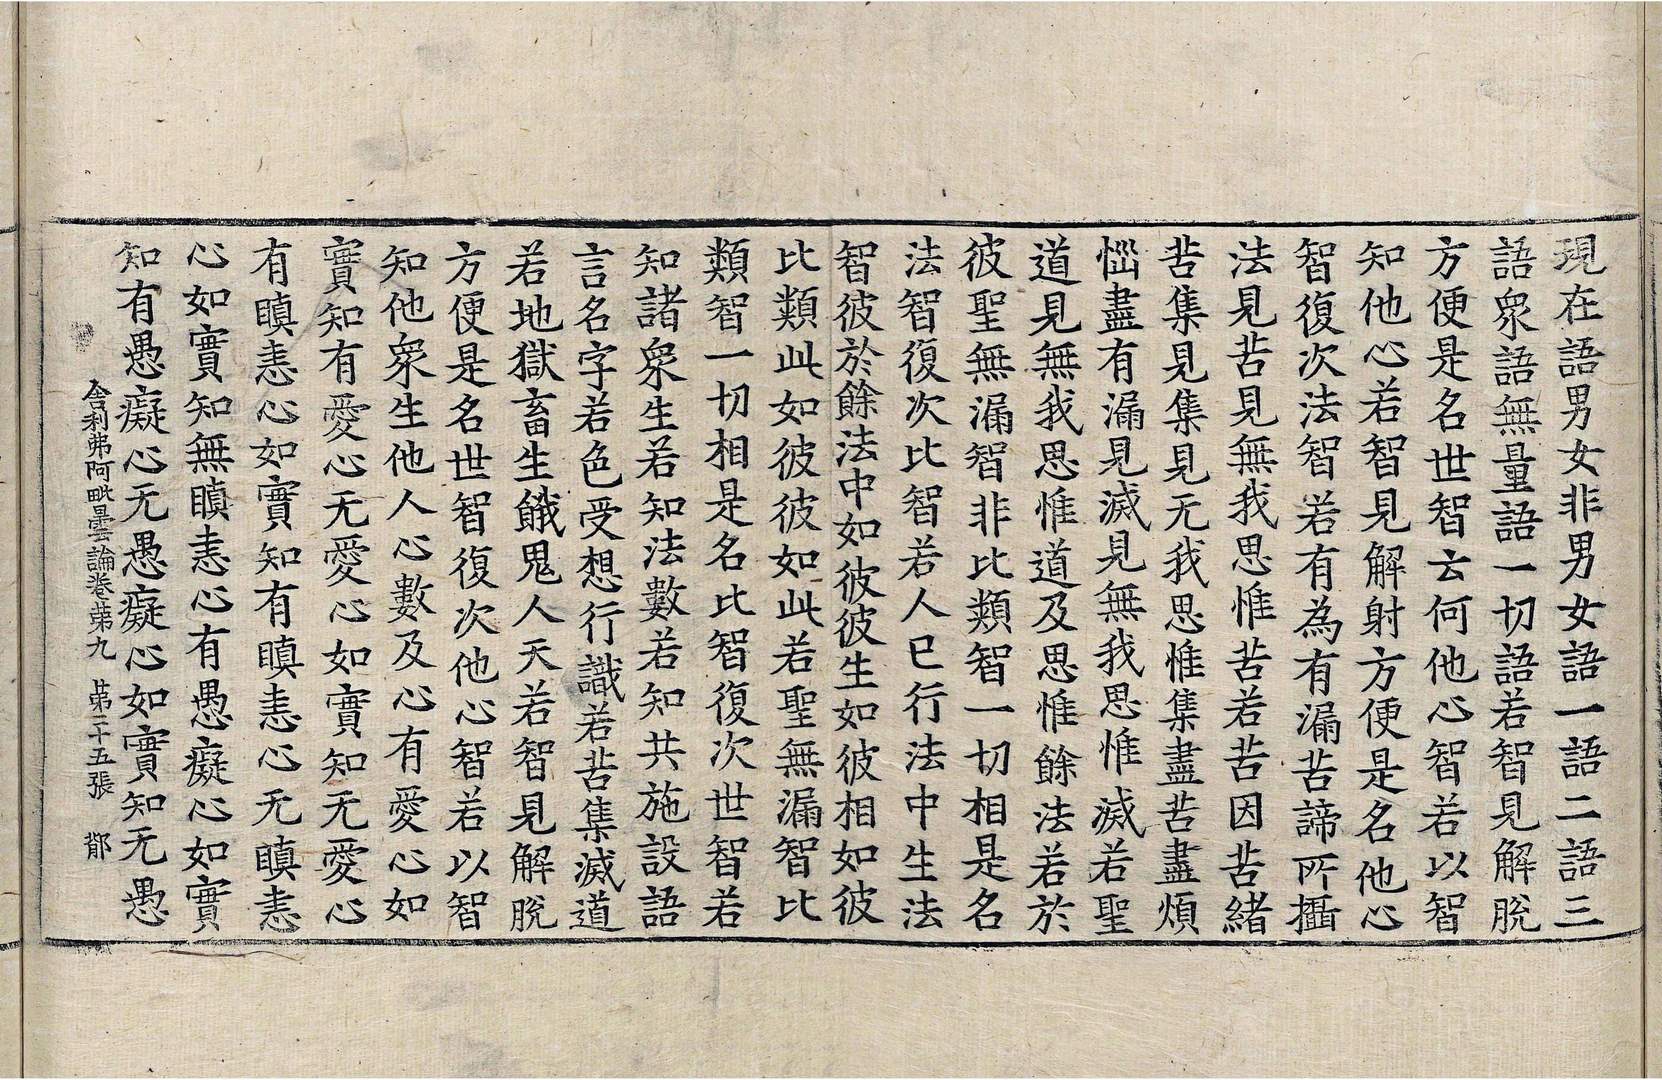 現在語男女非男女語一語二語三
語衆語無量語一切語若智見解脫
方便是名世智云何他心智若以智
知他心若智見解射方便是名他心
智復次法智若有為有漏苦諦所攝
法見苦見無我思惟苦若苦因苦緒
苦集見集見无我思惟集盡苦盡煩
惱盡有漏見滅見無我思惟滅若聖
道見無我思惟道及思惟餘法若於
彼聖無漏智非比類智一切相是名
法智復次比智若人已行法中生法
智彼於餘法中如彼彼生如彼相如彼
比類此如彼彼如此若聖無漏智比
類智一切相是名比智復次世智若
知諸衆生若知法數若知共施設語
言名字若色受想行識若苦集滅道
若地獄畜生餓鬼人天若智見解脫
方便是名世智復次他心智若以智
知他衆生他人心數及心有愛心如
實知有愛心无愛心如實知无愛心
有瞋恚心如實知有瞋恚心无瞋恚
心如實知無瞋恚心有愚癡心如實
知有愚癡心无愚癡心如實知无愚
舍利弗阿毗曇論卷第九 第二十五張 鄁